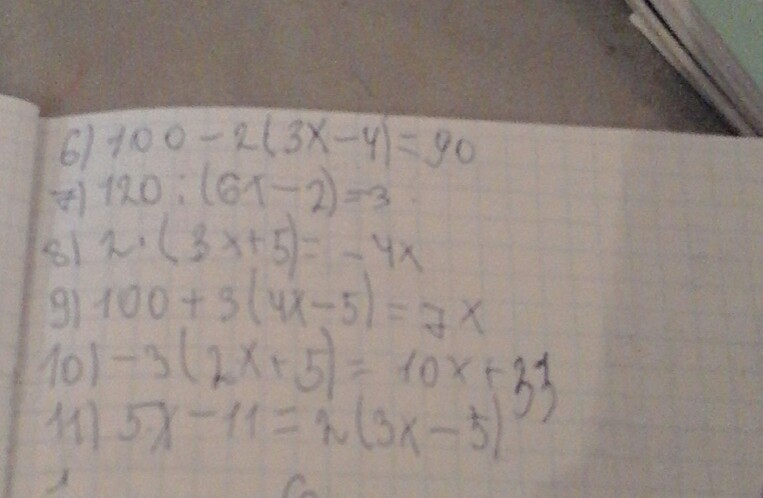 6) 100 - 2(3x-4)=90
7) 120 : (6x-2)=3
8) 2·(3x+5)= -4x
9) 100+3(4x-5)=7x
10) -3(2x+5)= 10x+33
11) 5x-11=2(3x-5)